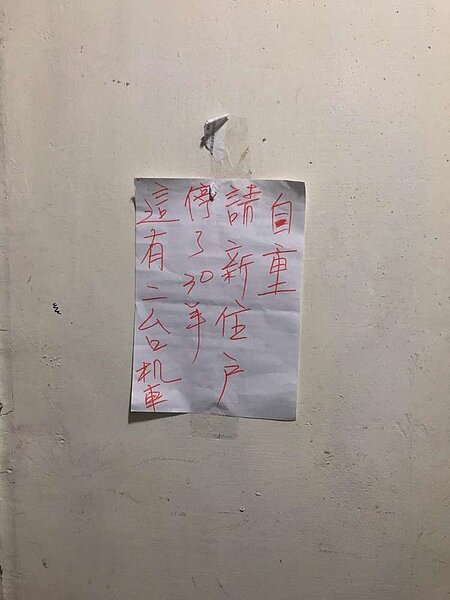 這有二台机車
停了30年
請新住戶
自重